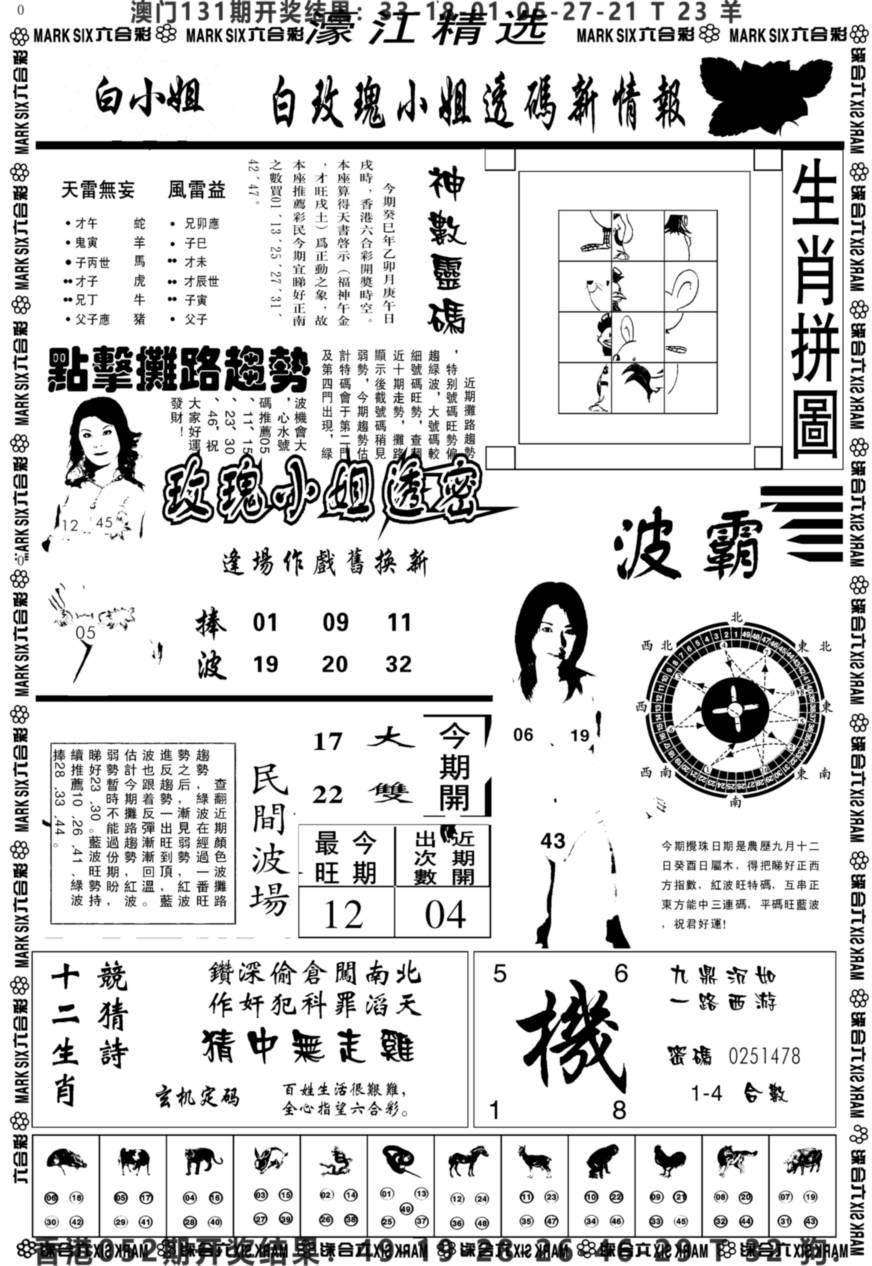 澳门131期开奖结果: 33-18-01-05-27-21 T 23 羊
MARK SIX六合彩 MARK SIX六合彩 濠江精选 MARK SIX六合彩 MARK SIX六合彩
白小姐 白玫瑰小姐透碼新情報
天雷無妄 風雷益
才午 蛇 兄卯應
鬼寅 羊 子巳
子丙世 馬 才未
才子 虎 才辰世
兄丁 牛 子寅
父子應 猪 父子
神數靈碼
今期癸巳年乙卯月庚午日
戌時，香港六合彩開獎時空。
本座算得天書啓示（福神午金
，才旺戌土）爲正動之象，故
本座推薦彩民今期宜睇好正南
之數買01′13′25′27′31′
42′47′。
生肖拼圖
點擊攤路趨勢
近期攤路趨勢
，特别號碼旺勢偏
趨綠波，大號碼較
細號碼旺勢，查翻
近十期走勢，攤路
顯示後截號碼稍見
弱勢，今期趨勢估
計特碼會于第二門
及第四門出現，綠
波機會大
，心水號
碼推薦05
、11、15
、23、30
、46，祝
大家好運
發財！
12 45
05
玫瑰小姐透密
逢場作戲舊换新
捧 01 09 11
波 19 20 32
波霸
06 19
43
北
東北
東
東南
南
西南
西
西北
今期攪珠日期是農歷九月十二
日癸酉日屬木，得把睇好正西
方指數，紅波旺特碼，互串正
東方能中三連碼，平碼旺藍波
，祝君好運!
查翻近期顏色攤路
趨勢，綠波在經過一波
勢之后，漸見弱勢，紅番旺
進反趨勢一出旺到頂，藍波
波也跟着反彈漸漸回温，
估計今期攤路趨勢紅波。
弱勢暫時不能過份期盼
睇好23、30。藍波旺勢持，
續推薦10、26、41、綠波
捧28、33、44。
民間波場
17 大 今期開
22 雙
今期最旺 近期開出次數
12 04
十二生肖
競猜詩
鑽深偷倉闖南北
作奸犯科罪滔天
猜中無走雞
玄机定码
百姓生活很艱難，
全心指望六合彩。
5 6
機
1 8
九鼎沉如
一路西游
密碼 0251478
1-4 合數
06 18 05 17 04 16 03 15 02 14 01 13 12 24 11 23 10 22 09 21 08 20 07 19
30 42 29 41 28 40 27 39 26 38 25 49 37 36 48 35 47 34 46 33 45 32 44 31 43
香港052期开奖结果: 49-19-28-26-46-29 T 32 狗.